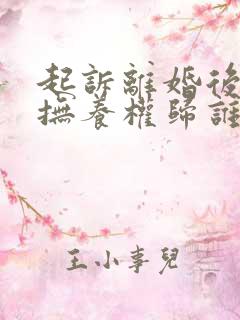 起訴離婚後
撫養權歸誰
王小事兒